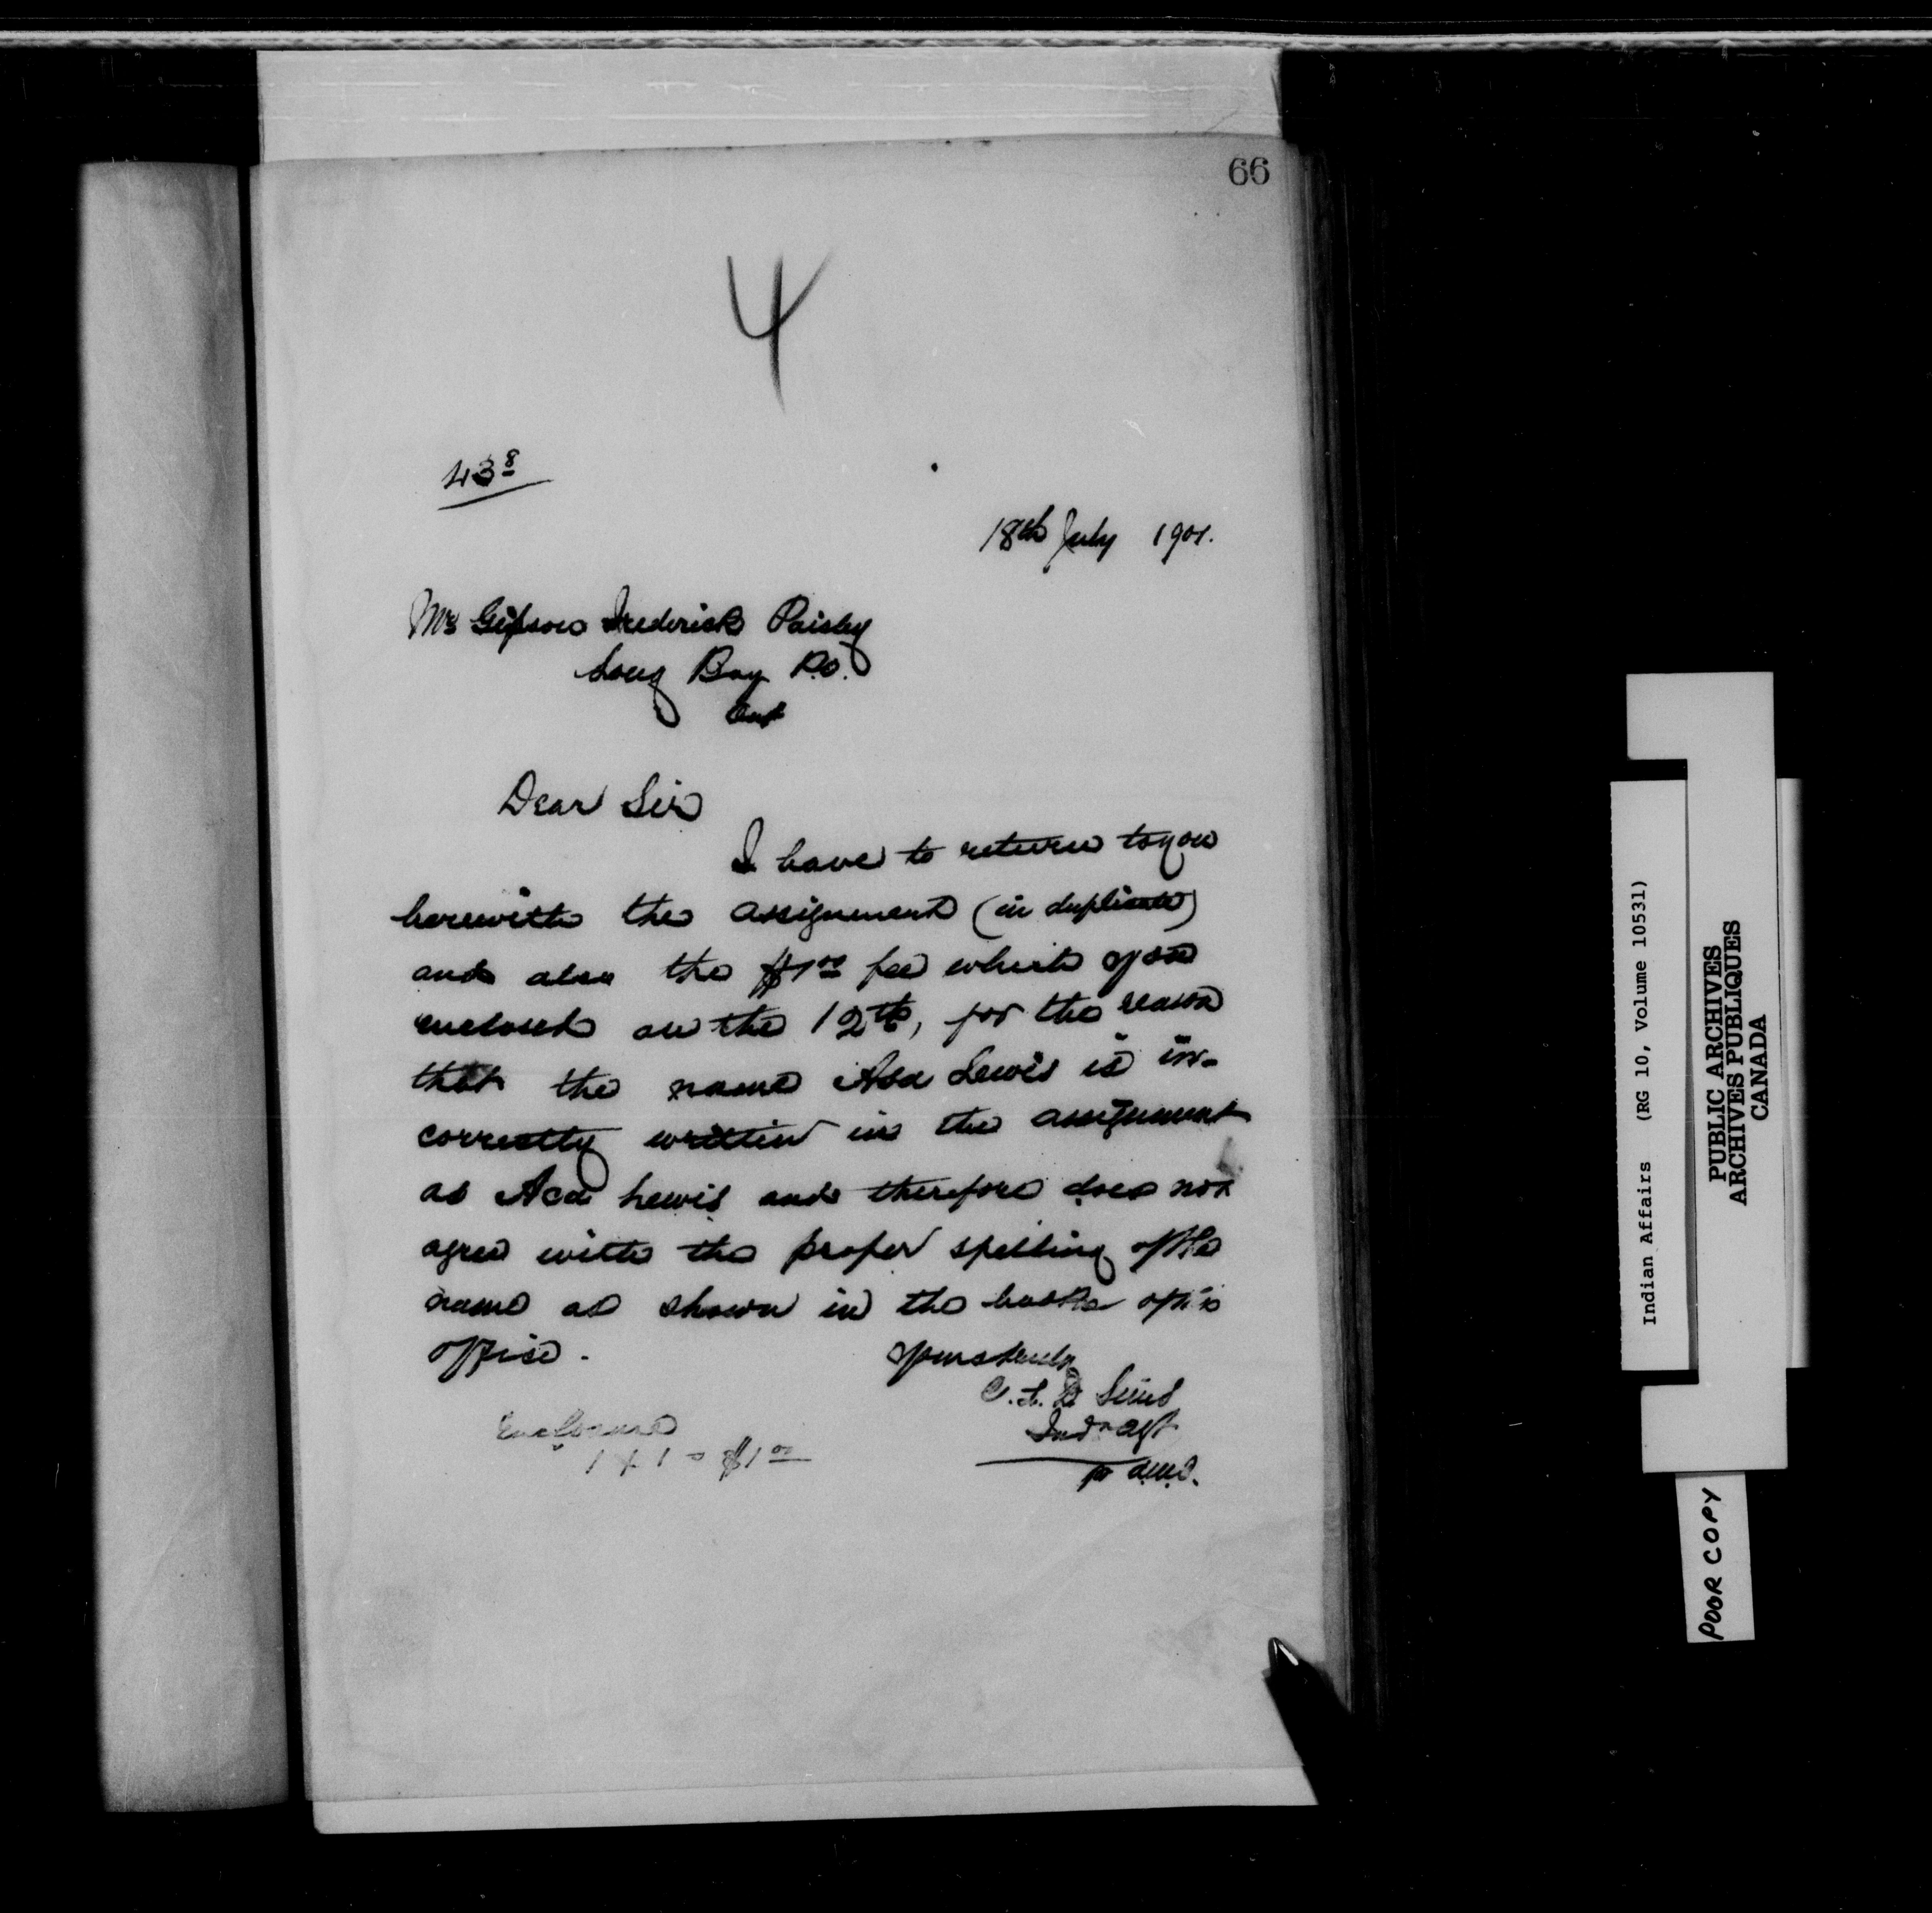 66
4
43 8
18th July 1901.
Mr Gipson Frederick Paisley
Long Bay P.O.
Ont
Dear Sir
I have to return to you
herewith the assignment (in duplicate)
and also the $1 00 fee which you
enclosed on the 12th, for the reason
that the name Asa Lewis is in-
correctly written in the assignment
as Aca Lewis and therefore does not
agree with the proper spelling of the
name as shown in the books of this
office.
Yours truly
C.L.D. Sims
Indn Agt
Enclosure
1 + 1 - $1 00
Indian Affairs (RG 10, Volume 10531)
PUBLIC ARCHIVES
ARCHIVES PUBLIQUES
CANADA
POOR COPY